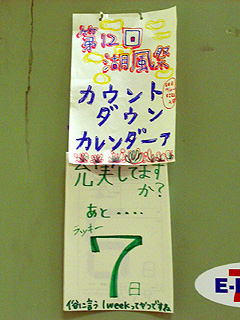 第12回
湖風祭
カウント
ダウン
カレンダーヲ
充実してます
か?
あと....
ラッキー
7日
俗に言う1weekってやつですね
E-